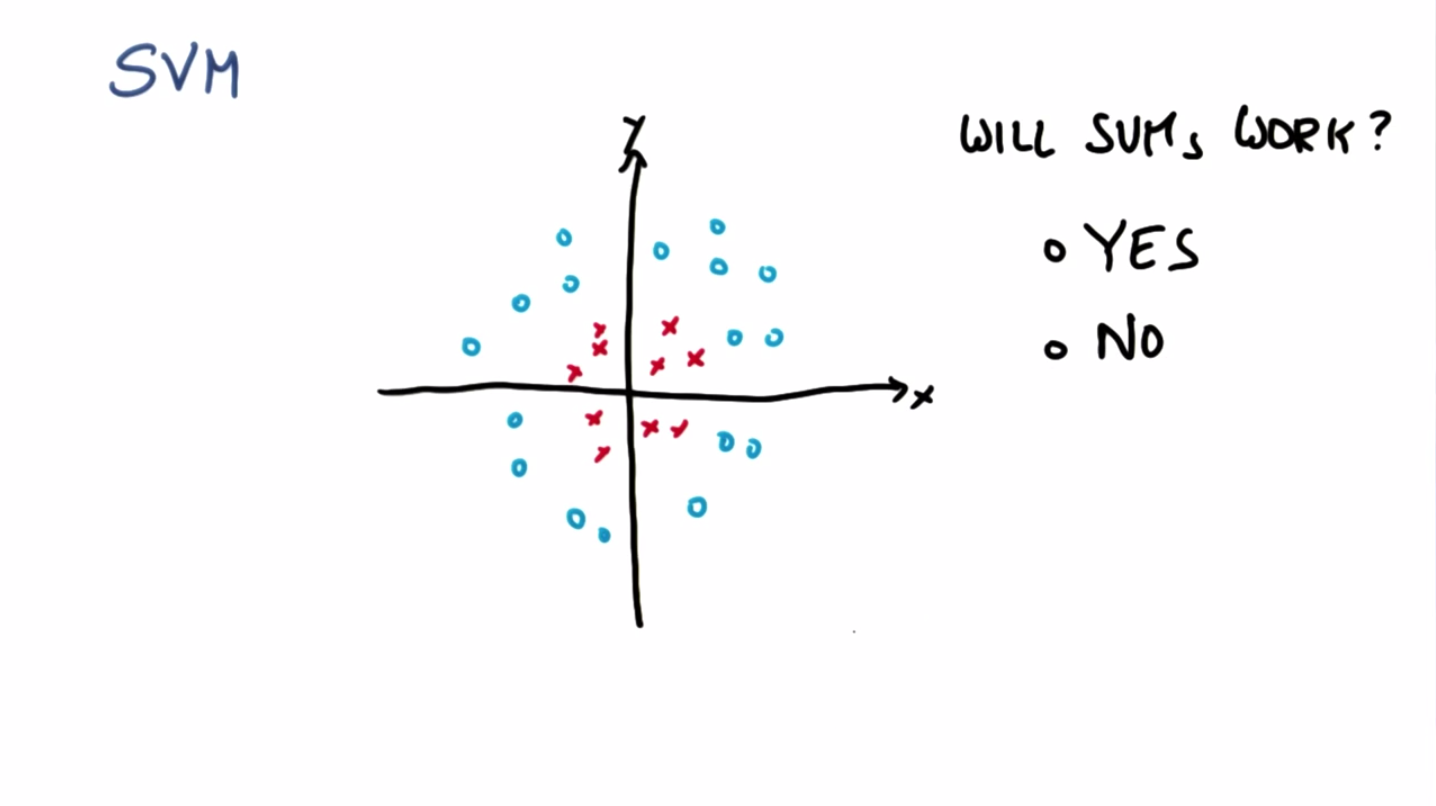 SVM
Y
WILL SVMs WORK?
YES
NO
X